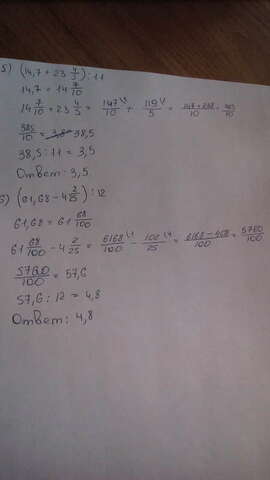 5) (14,7 + 23 4/5) : 11
14,7 = 14 7/10
14 7/10 + 23 4/5 = 147/10 + 119/5 = 147+238/10 = 385/10
385/10 = 38,5
38,5 : 11 = 3,5
Ответ: 3,5
6) (61,68 - 4 2/25) : 12
61,68 = 61 68/100
61 68/100 - 4 2/25 = 6168/100 - 102/25 = 6168-408/100 = 5760/100
5760/100 = 57,6
57,6 : 12 = 4,8
Ответ: 4,8